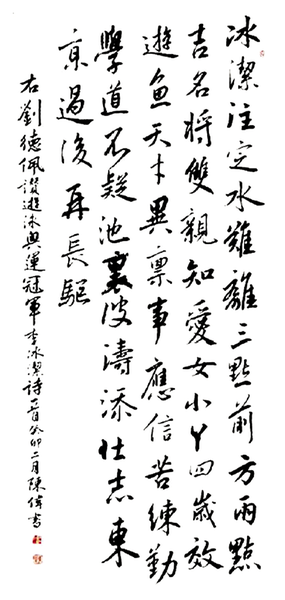 冰潔注定水難離三點前方兩點
吉名將雙親知愛女小丫四歲效
遊魚天才異稟事應信苦練勤
學道不疑池裏波濤添壯志東
京過後再長驅
右劉德佩讚遊泳奧運冠軍李冰潔詩一首癸卯二月陳偉書